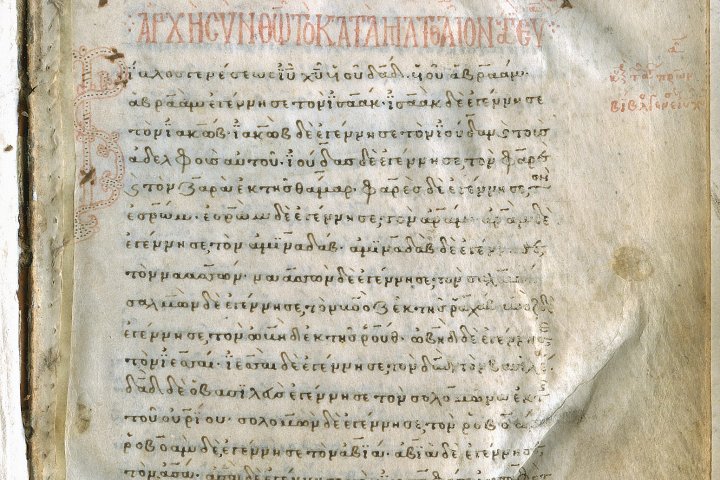 ΑΡΧΗ ΣΥΝ ΘΩ ΤΟ ΚΑΤΑ ΜΑΤΘΑΙΟΝ ΕΥ
ἐκ τοῦ πρώτου
βίβλος γενέσεως
ίβλος γενέσεως ἰῦ χῦ υἱοῦ δαδ υἱοῦ ἀβραάμ·
ἀβραὰμ ἐγέννησε τὸν ἰσαάκ· ἰσαὰκ δὲ ἐγέννησε
τὸν ἰακώβ· ἰακὼβ δὲ ἐγέννησε τὸν ἰούδαν καὶ τοὺς
ἀδελφοὺς αὐτοῦ· ἰούδας δὲ ἐγέννησε τὸν φαρὲς
καὶ τὸν ζαρὰ ἐκ τῆς θάμαρ· φαρὲς δὲ ἐγέννησε τὸν
ἐσρώμ· ἐσρὼμ δὲ ἐγέννησε τὸν ἀράμ· ἀρὰμ δὲ
ἐγέννησε τὸν ἀμιναδάβ· ἀμιναδὰβ δὲ ἐγέννησε
τὸν ναασσών· ναασσὼν δὲ ἐγέννησε τὸν σαλμών
σαλμὼν δὲ ἐγέννησε τὸν βοὸζ ἐκ τῆς ῥαχάβ· βοὸζ δὲ
ἐγέννησε τὸν ὠβὴδ ἐκ τῆς ῥούθ· ὠβὴδ δὲ ἐγέννησε
τὸν ἰεσσαί· ἰεσσαὶ δὲ ἐγέννησε τὸν δαδ τὸν βασιλέα
δαδ δὲ ὁ βασιλεὺς ἐγέννησε τὸν σολομῶνα ἐκ τῆς
τοῦ οὐρίου· σολομὼν δὲ ἐγέννησε τὸν ῥοβοάμ
ῥοβοὰμ δὲ ἐγέννησε τὸν ἀβιά· ἀβιὰ δὲ ἐγέννησε
τὸν ἀσά· ἀσὰ δὲ ἐγέννησε τὸν